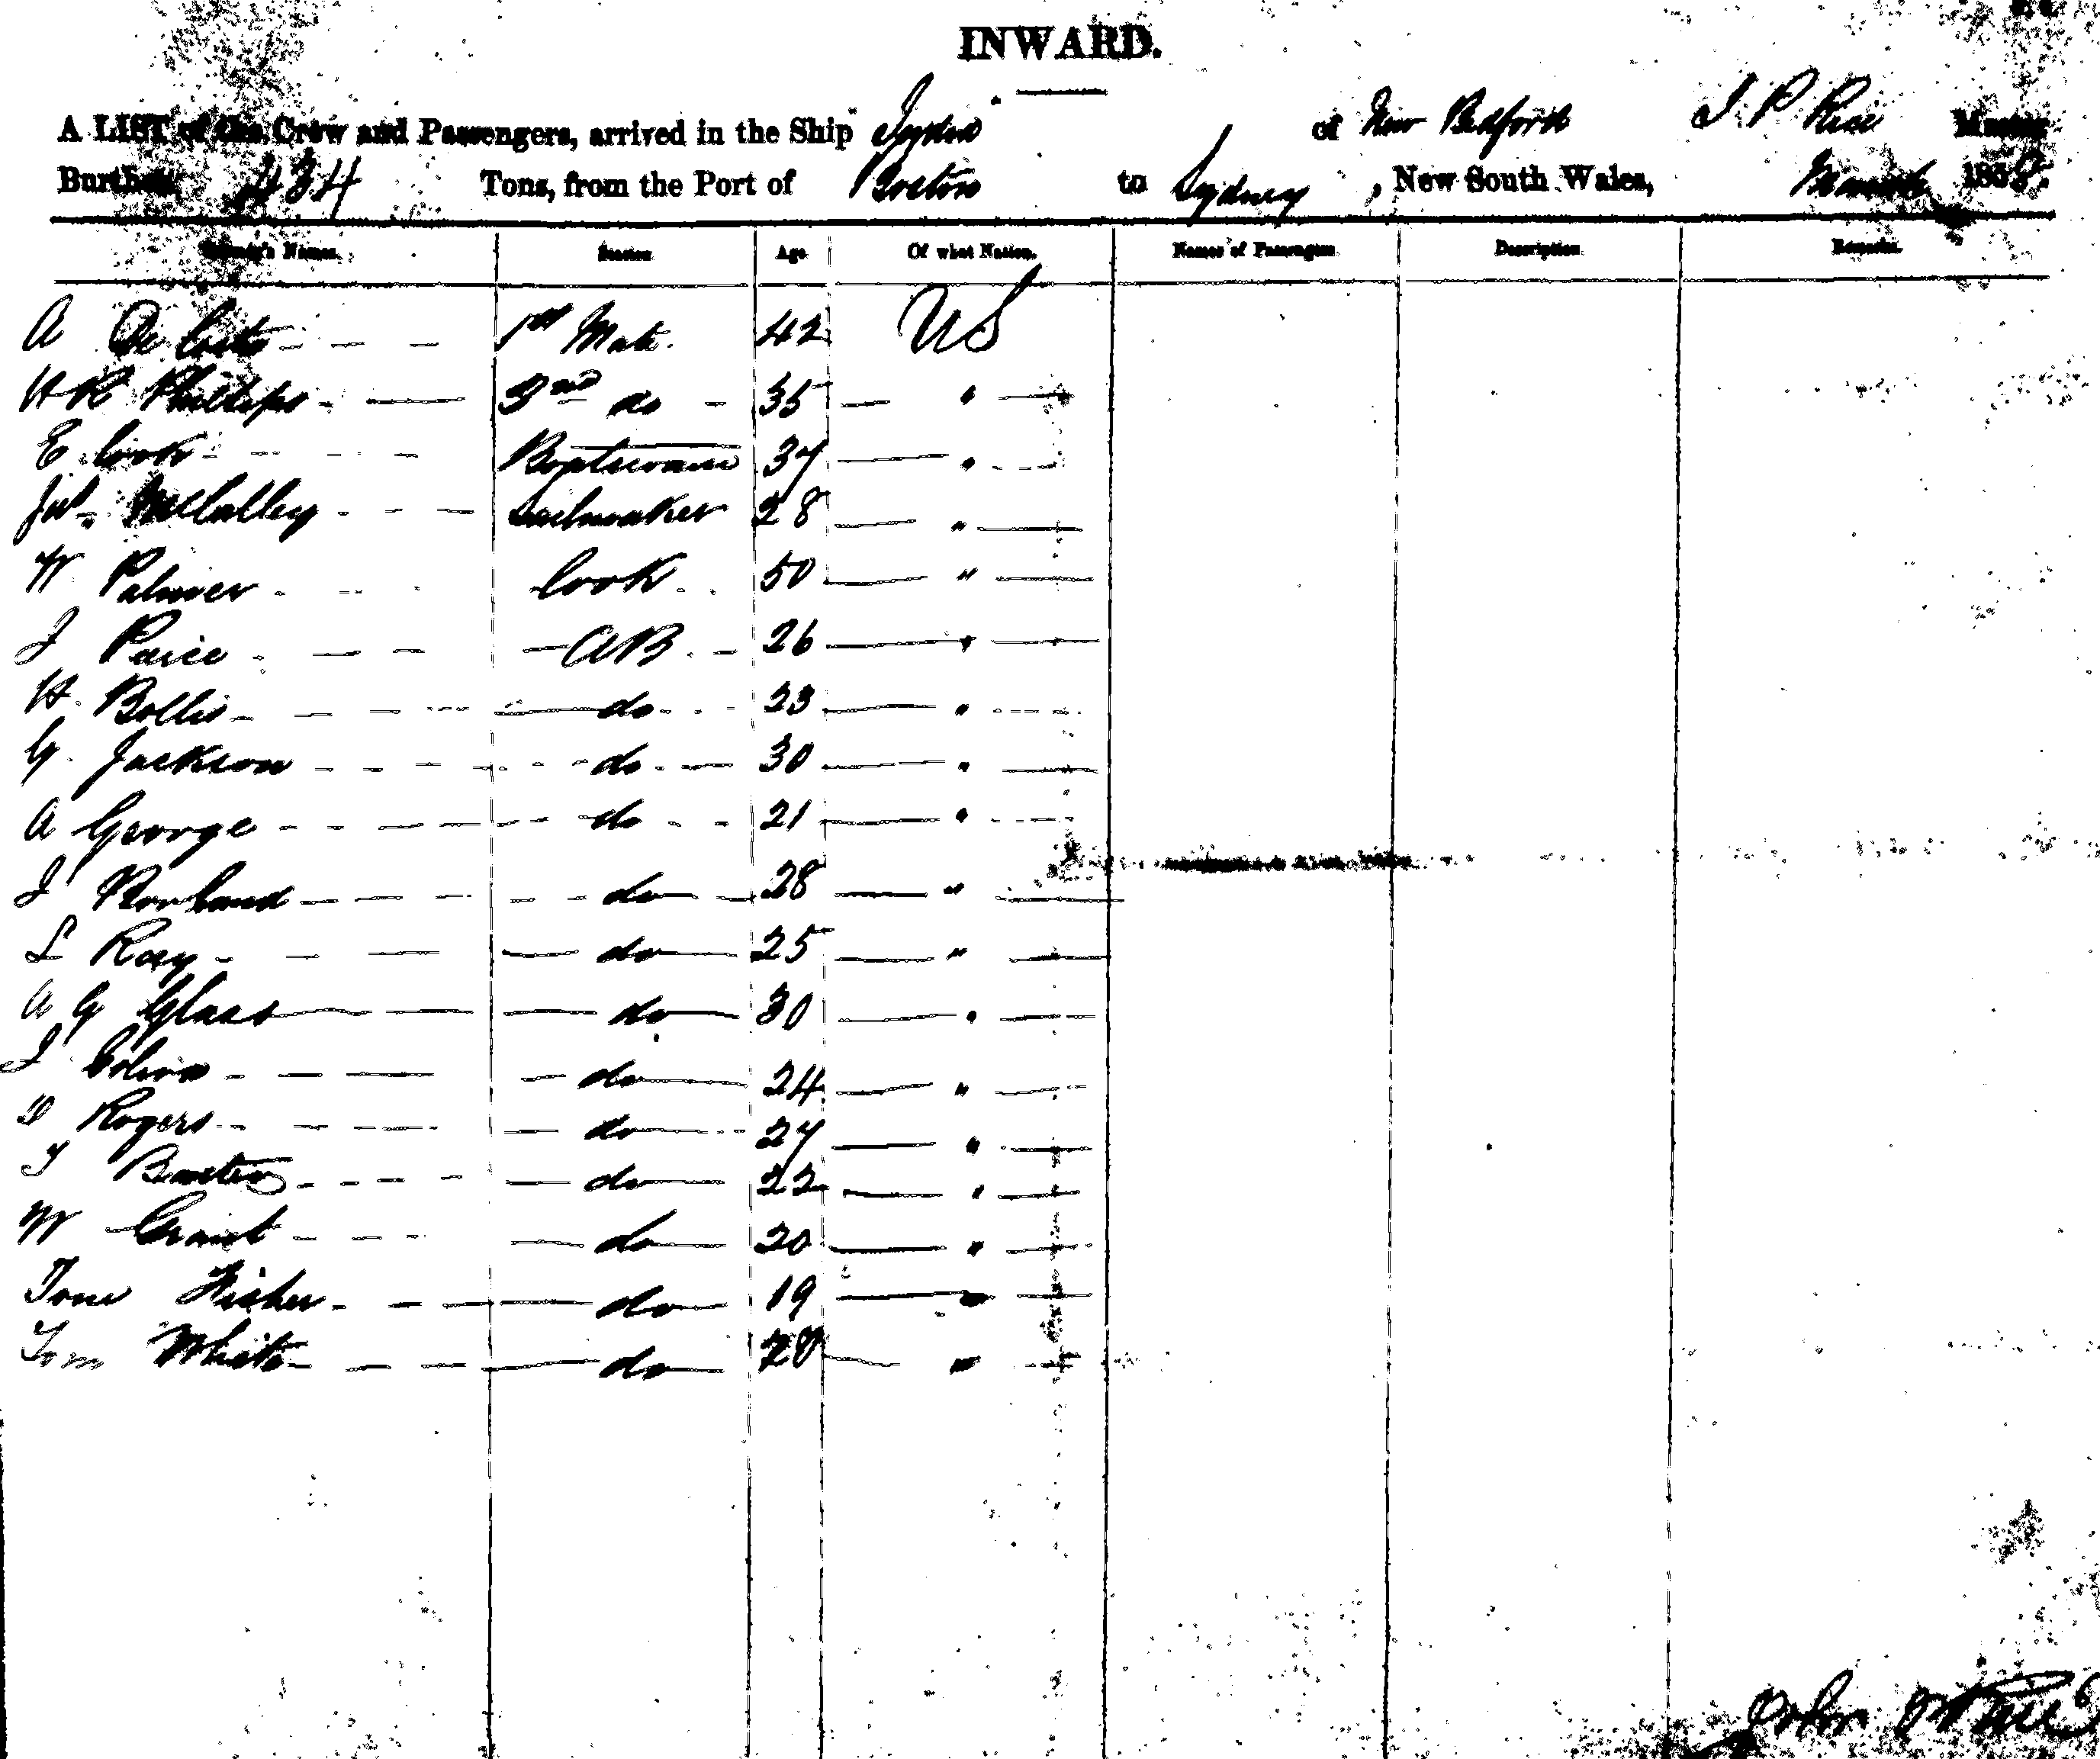 INWARD.
A LIST of the Crew and Passengers, arrived in the Ship of New Bedford J. P. Rice Master
Burthen 434 Tons, from the Port of Boston to Sydney, New South Wales, March 1858.
Names. Station Age Of what Nation. Names of Passengers Description Remarks.
A De 1st Mate. 42 US
H R Phillips 2nd do 35 "
E Cook Boatswain 37 "
McCalley Sailmaker 28 "
W Palmer Cook 50 "
J Paice AB 26 "
H. Bollis do 23 "
G. Jackson do 30 "
A George do 21 "
J do 28 "
L Ray do 25 "
A G Glass do 30 "
J do 24 "
D Rogers do 27 "
J do 22 "
W Grant do 20 "
Tom Fisher do 19 "
Tom White do 28 "
John